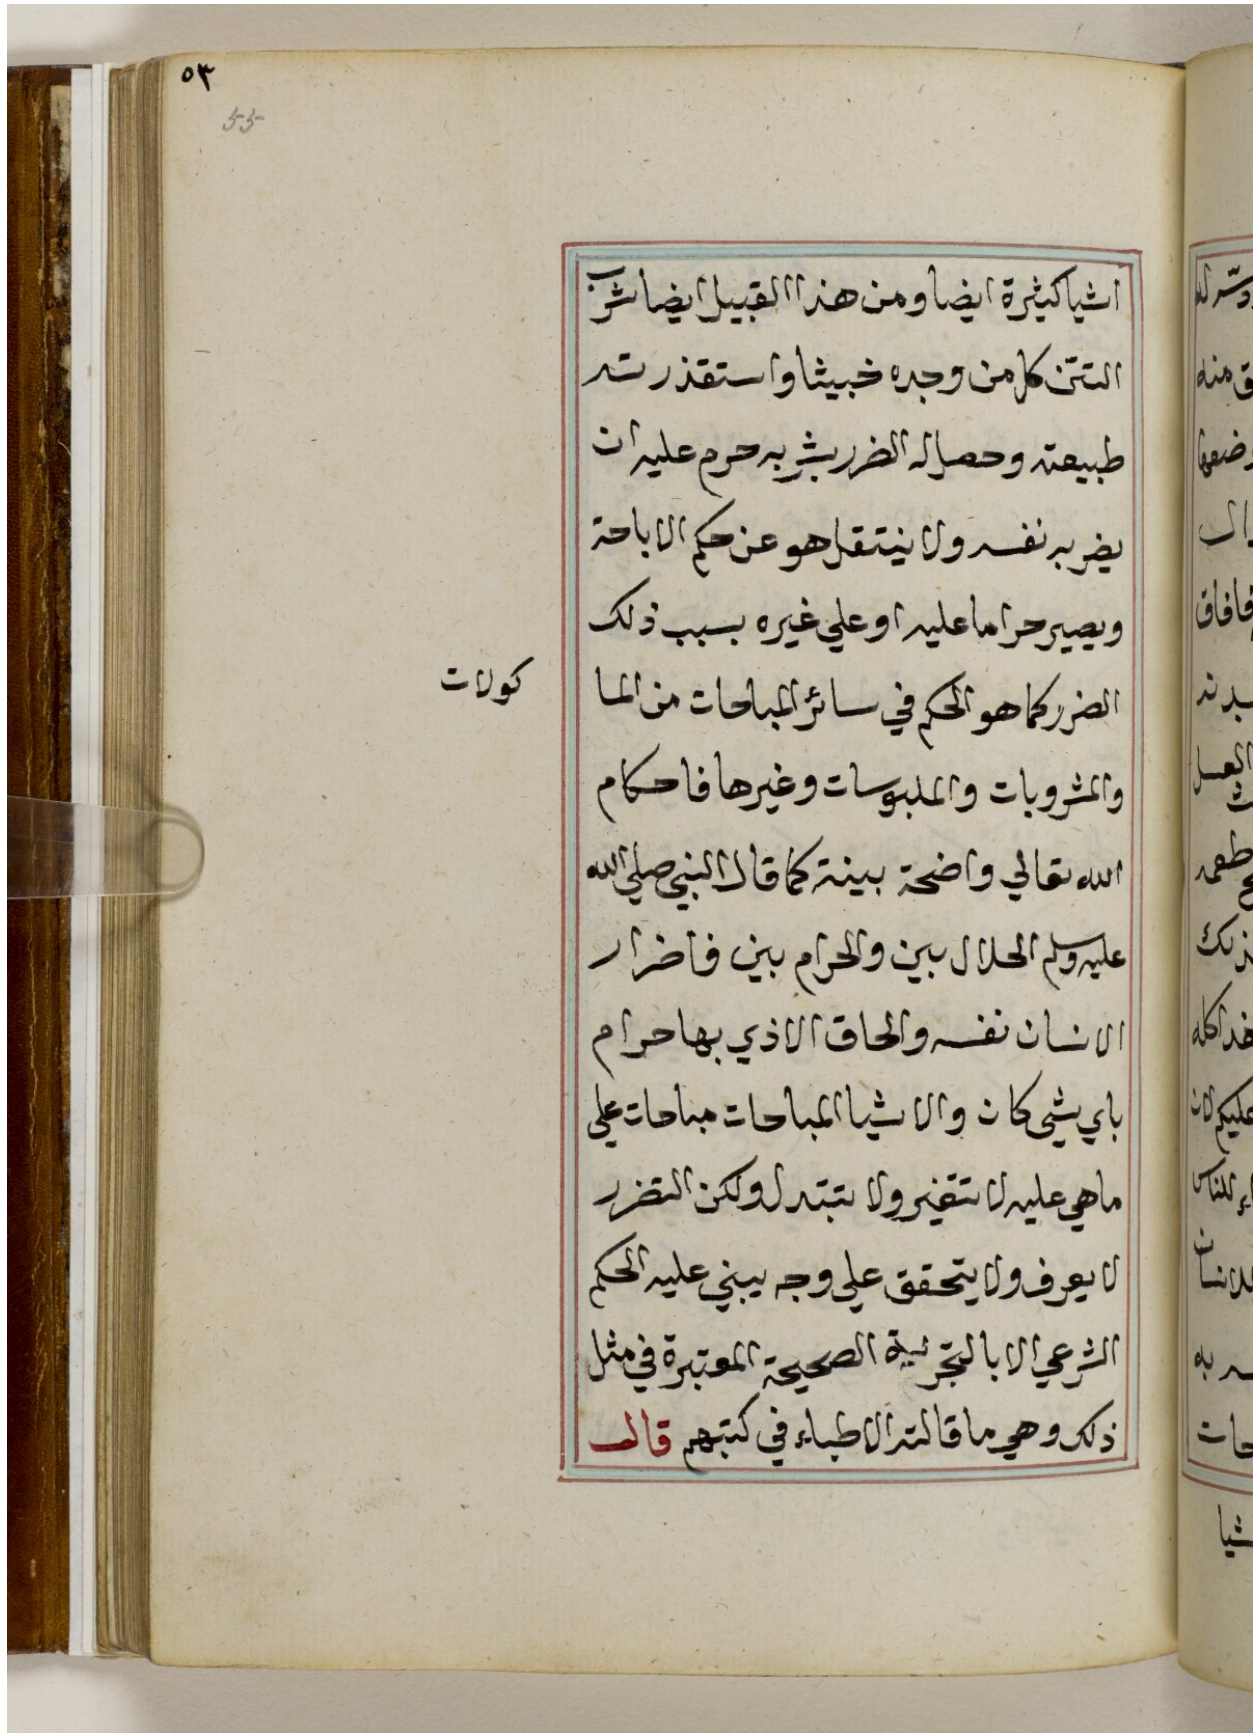 ٥٣
55
اشيا كثيرة ايضا ومن هذا القبيل ايضا شرب
التتن كل من وجده خبيثا واستقذرته
طبيعته وحصل له الضرر بشربه حرم عليه ان
يضر به نفسه ولا ينتقل هو عن حكم الاباحة
ويصير حراما عليه او علي غيره بسبب ذلك
الضرر كما هو الحكم في سائر المباحات من الما
كولات
والمشروبات والملبوسات وغيرها فاحكام
الله تعالي واضحة بينة كما قال النبي صلي الله
عليه وسلم الحلال بين والحرام بين فاضرار
الانسان نفسه والحاق الاذي بها حرام
باي شي كان والاشيا المباحات مباحات علي
ما هي عليه لا تتغير ولا تتبدل ولكن التضرر
لا يعرف ولا يتحقق علي وجه يبني عليه الحكم
الشرعي الا بالتجربة الصحيحة المعتبرة في مثل
ذلك وهي ما قالته الاطباء في كتبهم قال